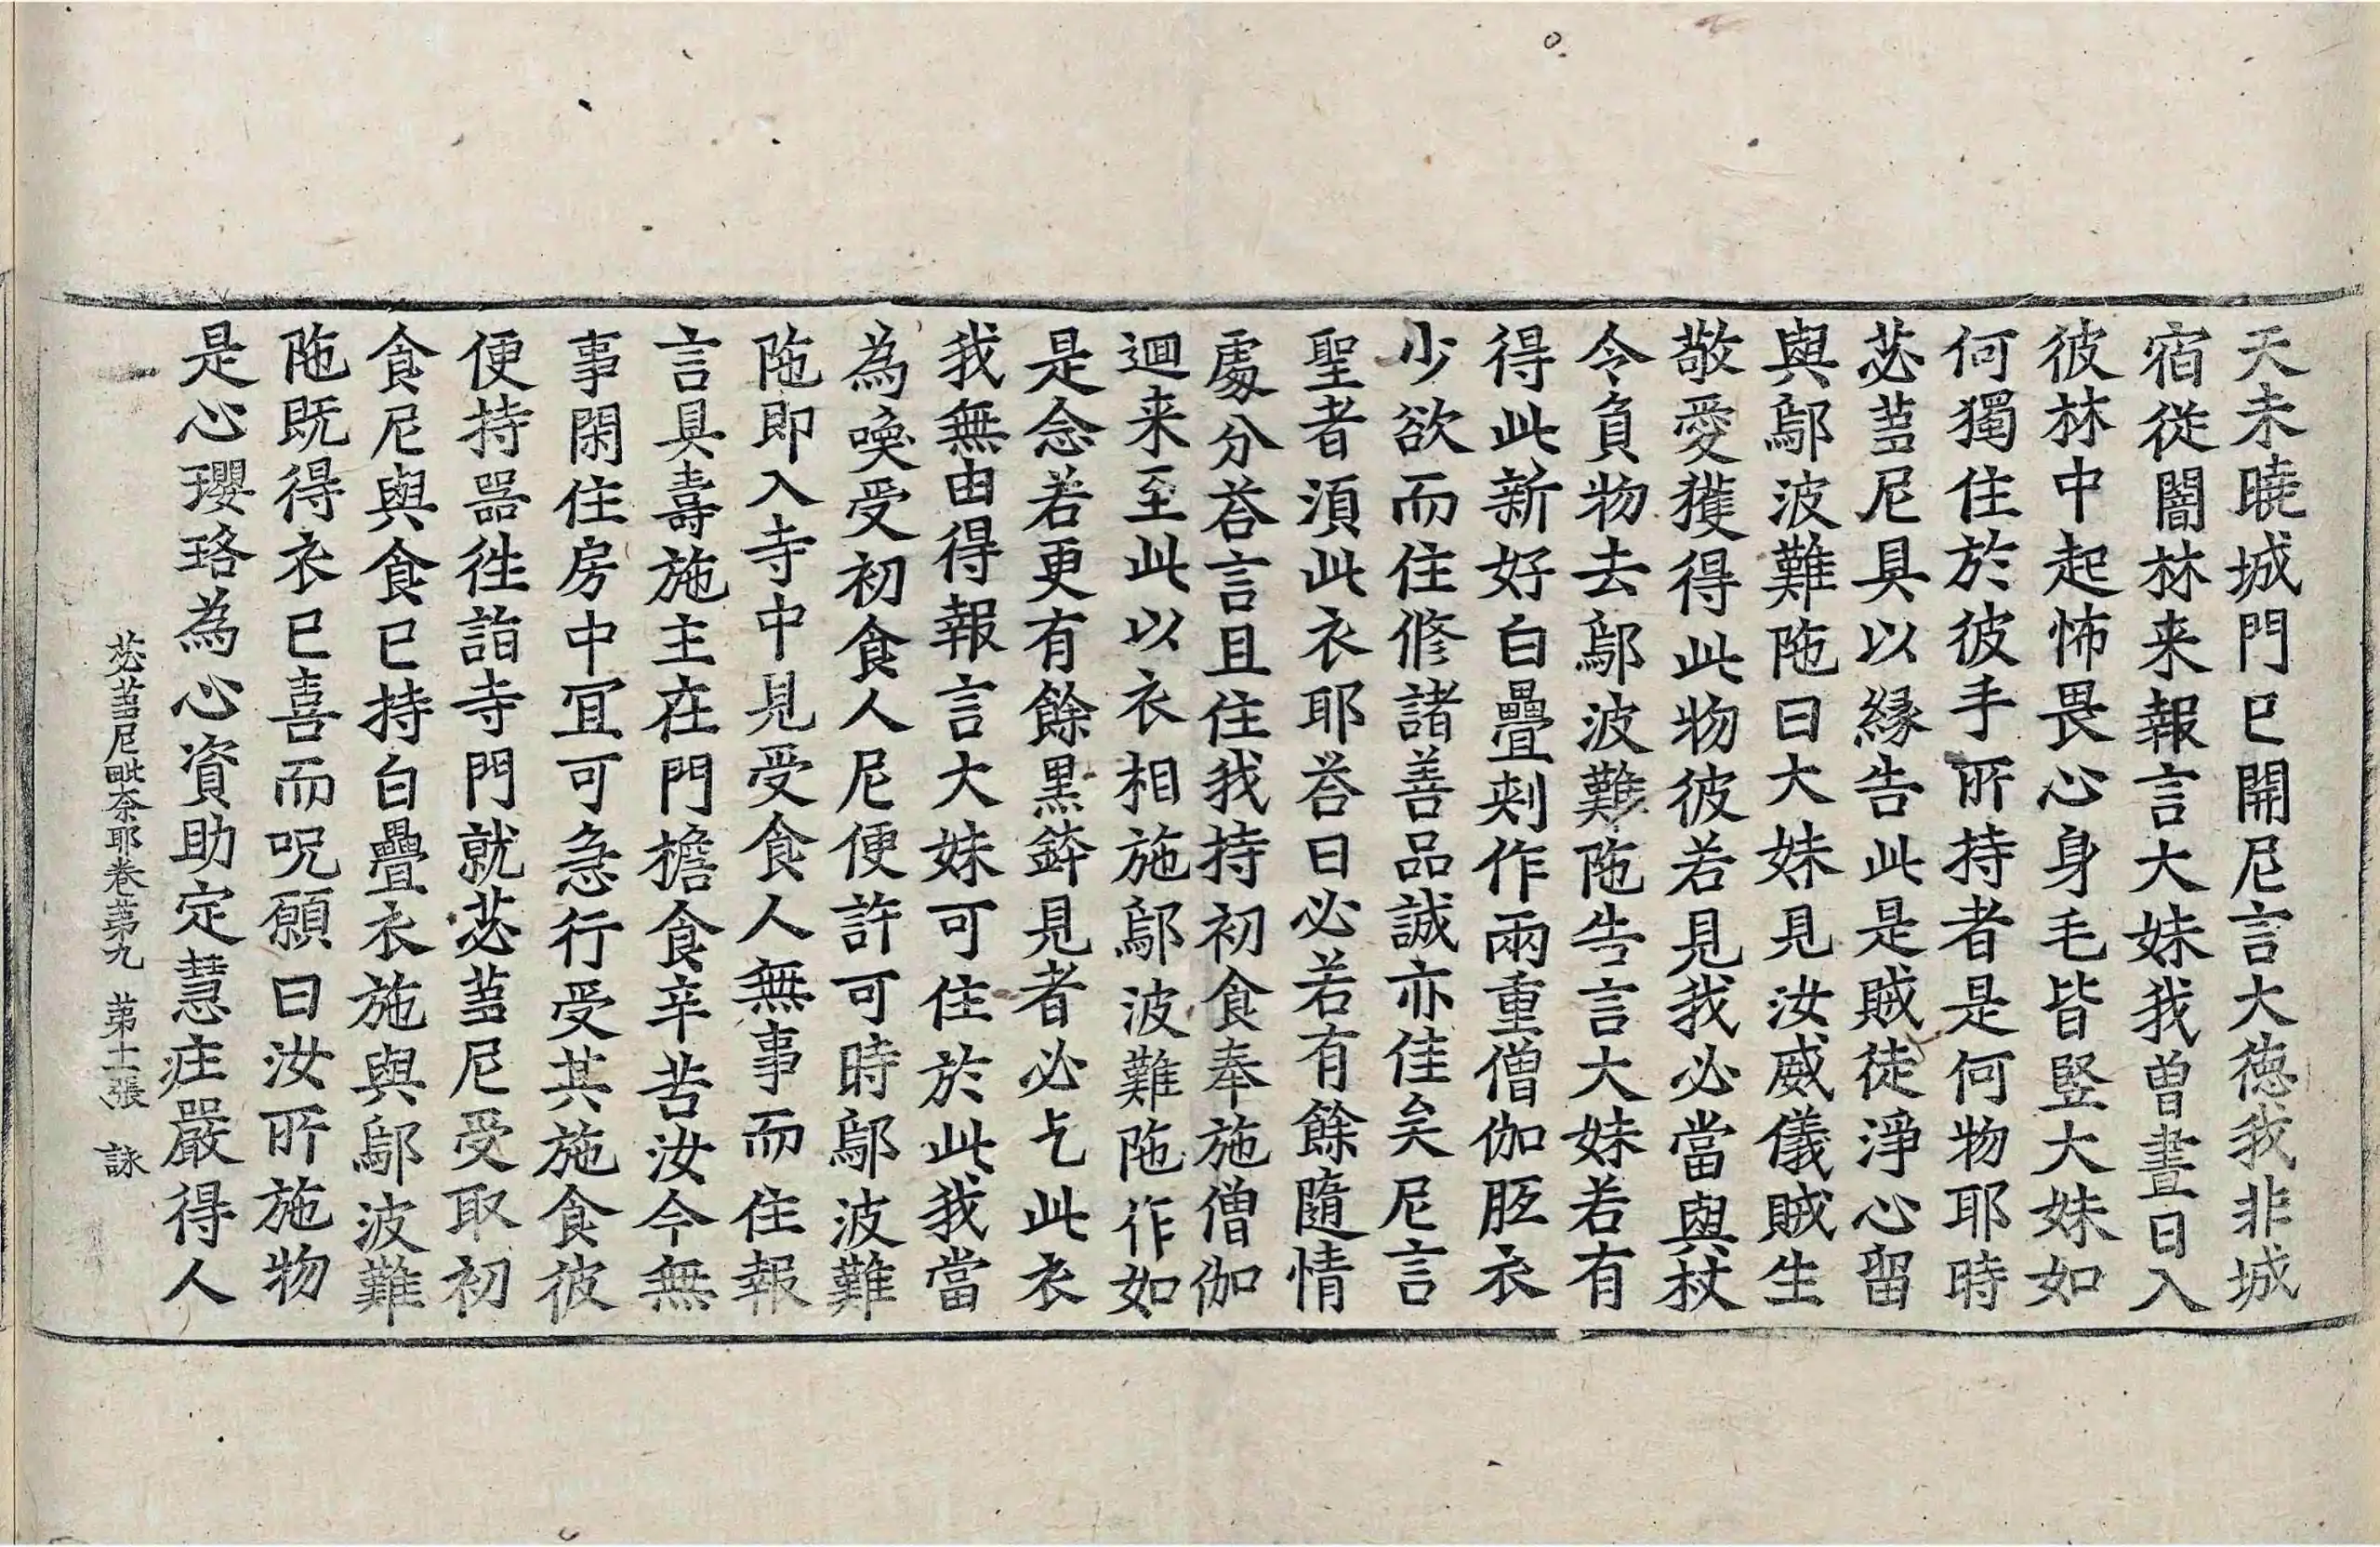 天未曉城門已開尼言大德我非城
宿從闇林来報言大妹我曽晝日入
彼林中起怖畏心身毛皆竪大妹如
何獨住於彼手所持者是何物耶時
苾蒭尼具以緣告此是賊徒淨心留
與鄔波難陁曰大妹見汝威儀賊生
敬愛獲得此物彼若見我必當與杖
令負物去鄔波難陁告言大妹若有
得此新好白疊刾作兩重僧伽胝衣
少欲而住修諸善品誠亦佳矣尼言
聖者湏此衣耶荅曰必若有餘隨情
處分荅言且住我持初食奉施僧伽
迴来至此以衣相施鄔波難陁作如
是念若更有餘黑鉢見者必乞此衣
我無由得報言大妹可住於此我當
為喚受初食人尼便許可時鄔波難
陁即入寺中見受食人無事而住報
言具壽施主在門擔食辛苦汝今無
事閑住房中冝可急行受其施食彼
便持器徃詣寺門就苾蒭尼受取初
食尼與食已持白疊衣施與鄔波難
陁既得衣已喜而呪願曰汝所施物
是心瓔珞為心資助定慧庄嚴得人
苾蒭尼毗柰耶卷苐九 苐十二張 詠